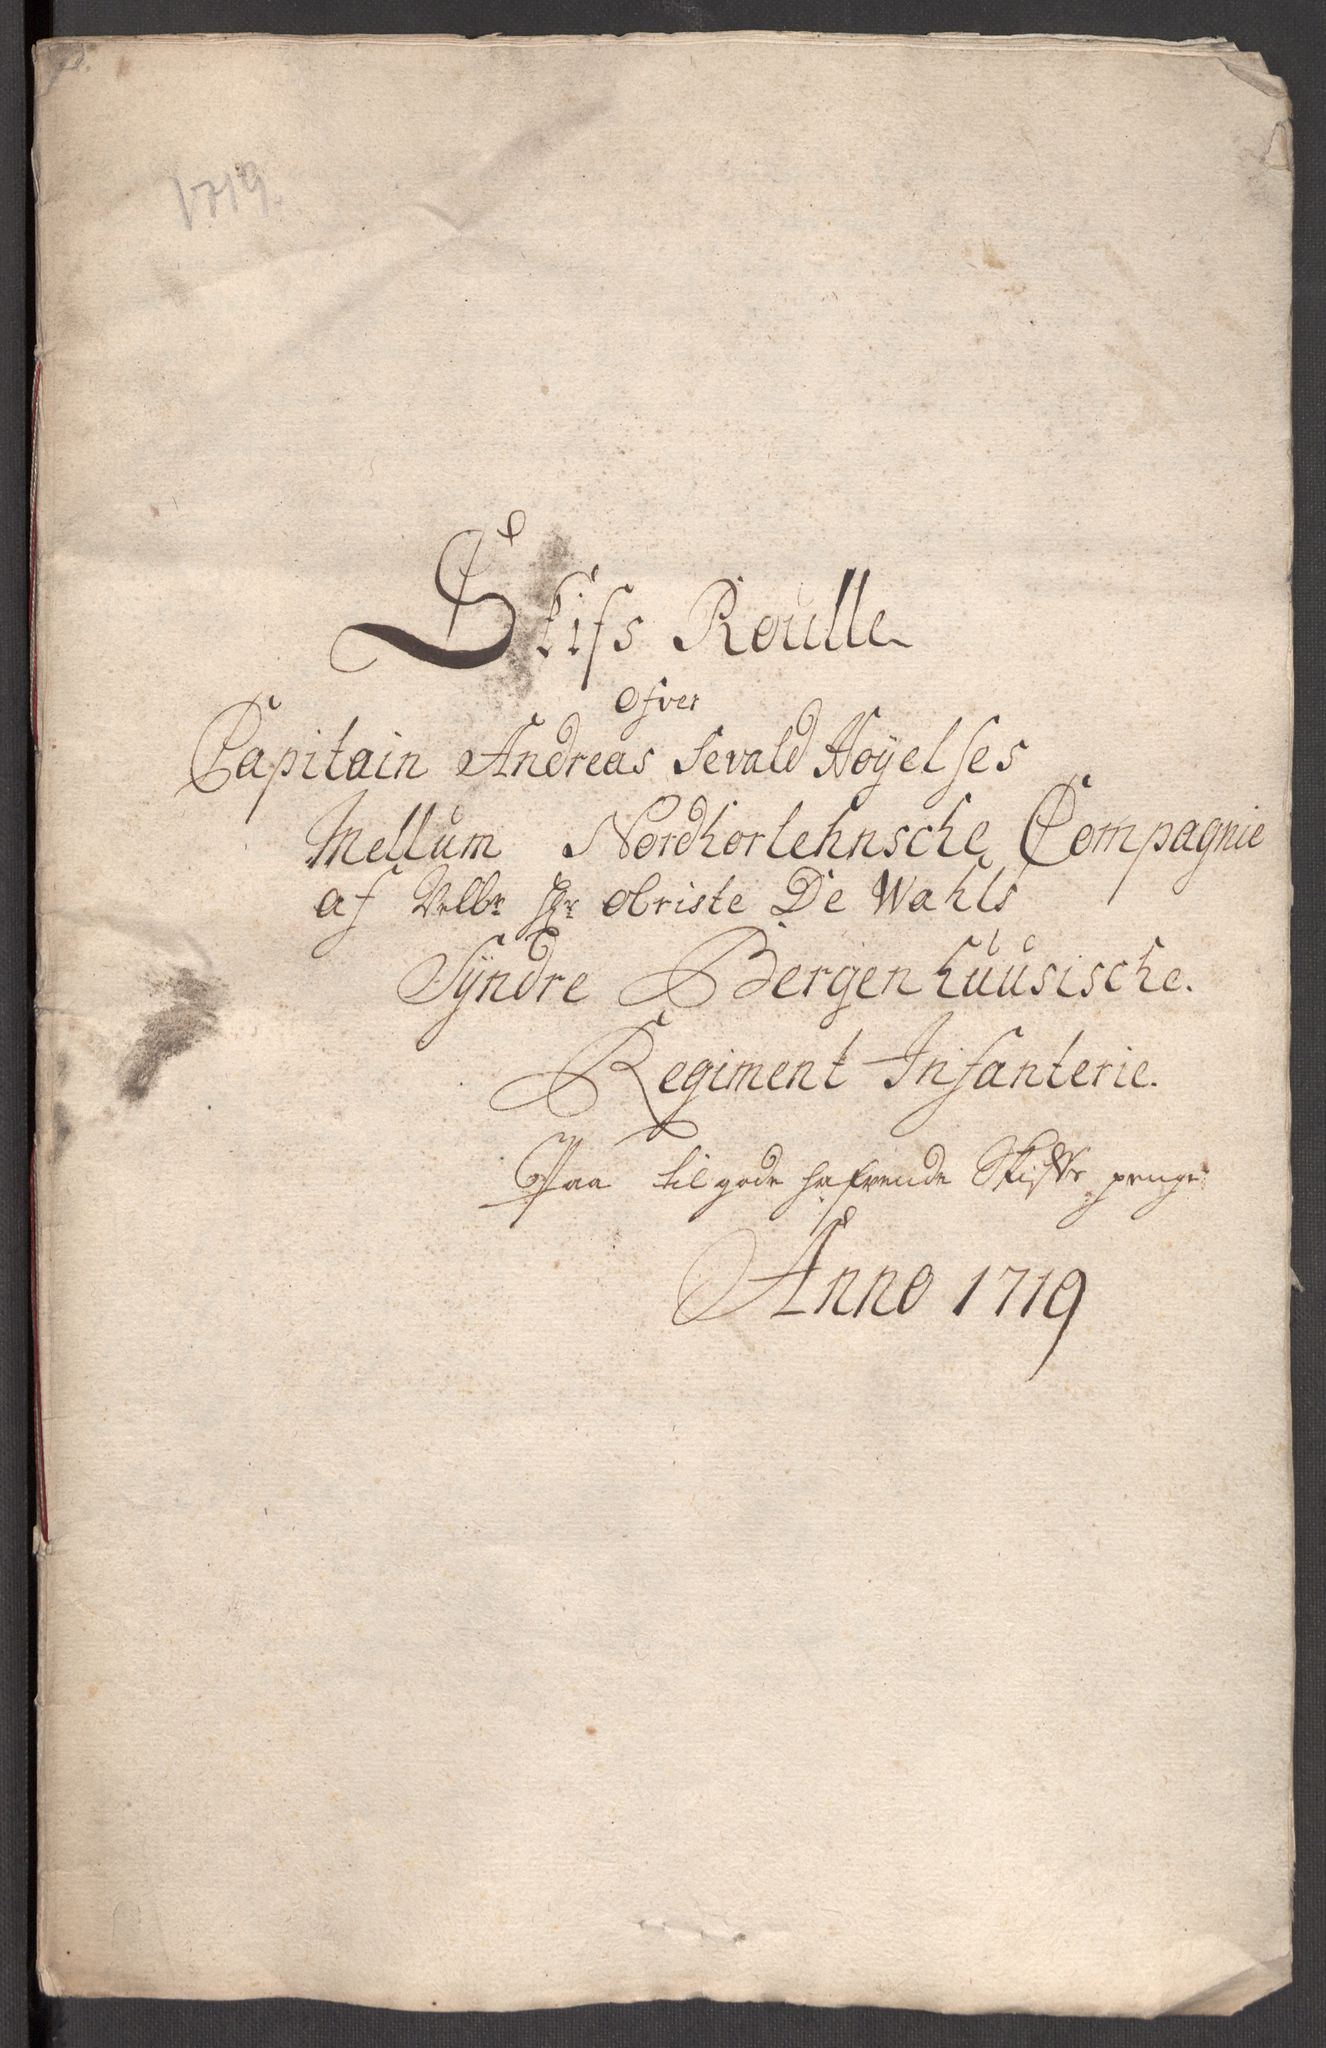 1719.
Skifs Roulle
ofver
Capitain Andreas Sevald Høÿelses
Mellum Nordhorlehnsche Compagnie
af Velbr Hr Obriste De Wahls
Syndre Bergenhuusische.
Regiment Infanterie.
Paa til gode hafvende Skifts penge
Anno 1719